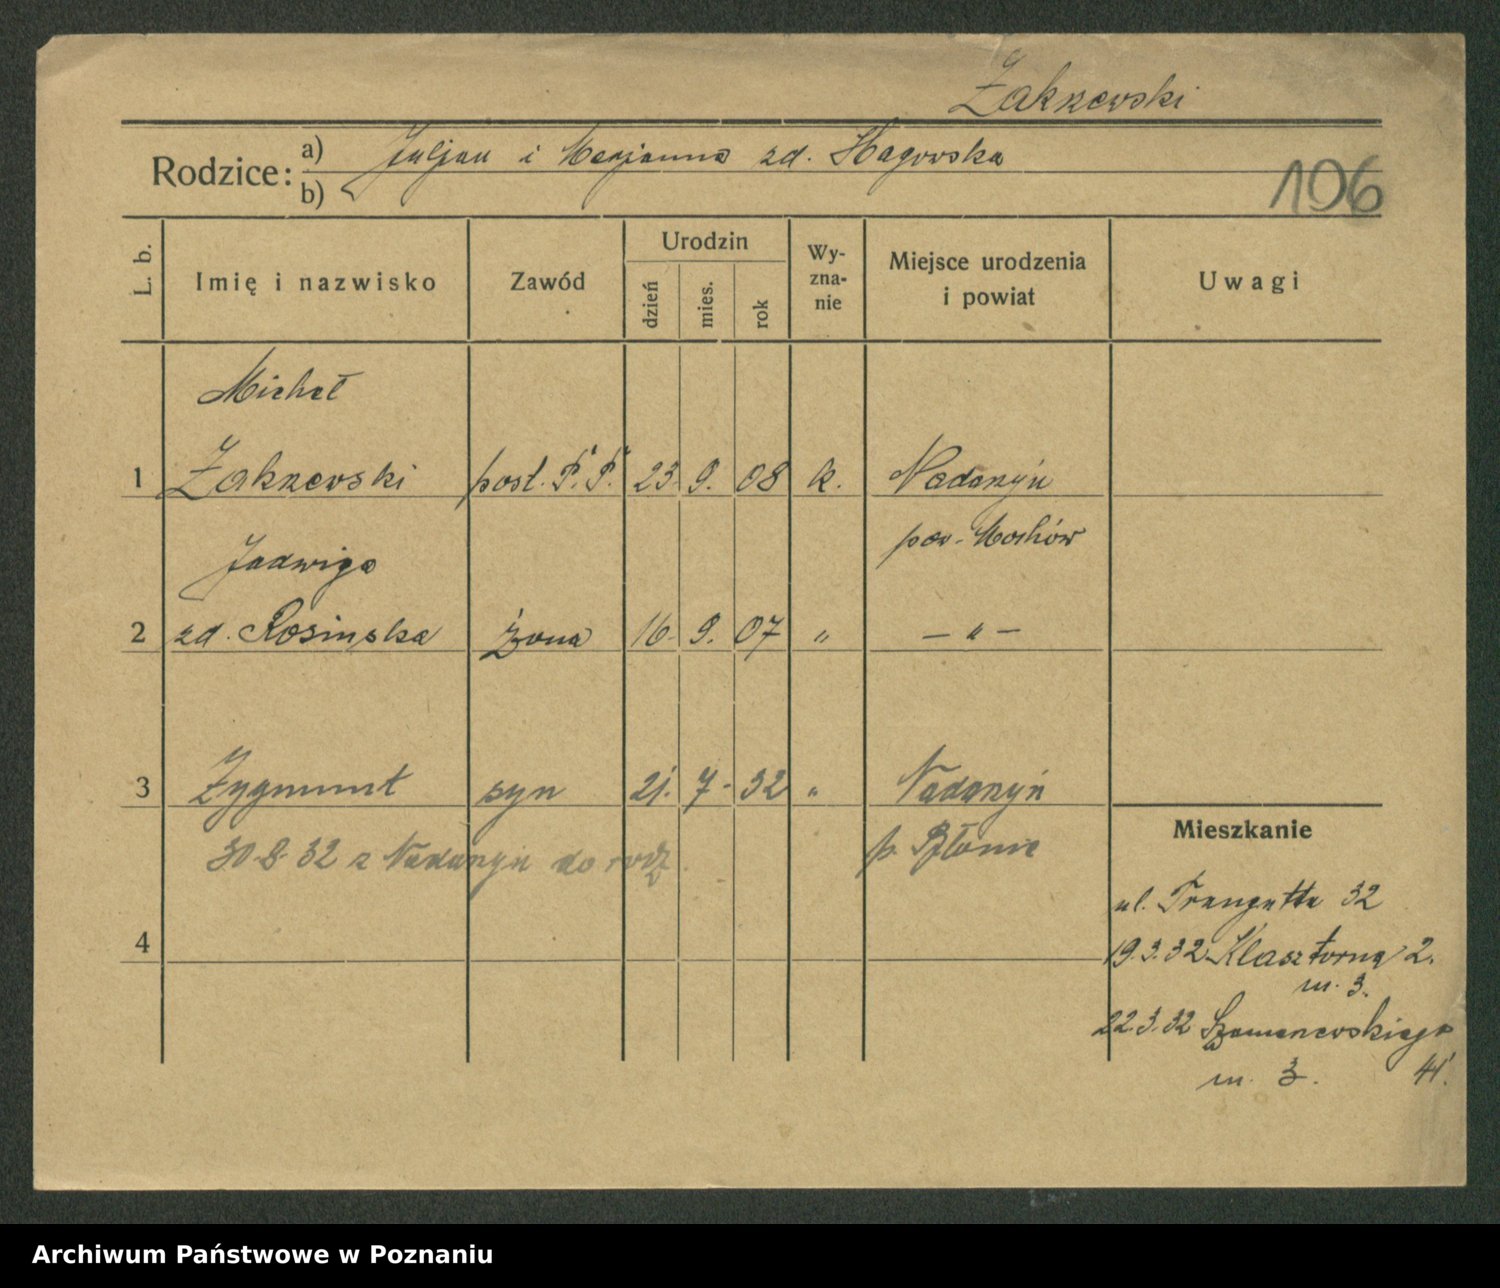 Zakrzewski
Rodzice:
a) Juljan i Marjanna zd.
b)
106
L. b.
Imię i nazwisko
Zawód
Urodzin
dzień
mies.
rok
Wy-
zna-
nie
Miejsce urodzenia
i powiat
Uwagi
Michał
1 Zakrzewski post. P. P. 23. 9. 08 k. Nadarzyn
pow.
Jadwiga
2 zd. Rosinska żona 16. 9. 07 „ — „ —
3 Zygmunt syn 21. 7. 32 „ Nadarzyn
30.8.32 z Nadarzyn do rodz. p. Błonie
4
Mieszkanie
ul. Traugutta 32
19.3.32 Klasztorna 2.
m. 3.
22.3.32 Szamarzewskiego
m. 3. 41.
Archiwum Państwowe w Poznaniu